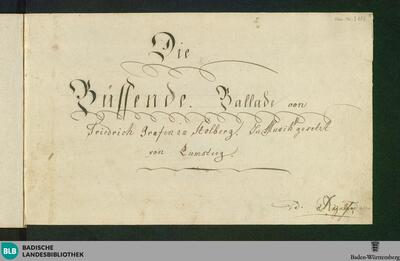 Die
Büssende. Ballade von
Friedrich Grafen zu Stolberg. In Musik gesetzt
von Zumsteeg.
BLB BADISCHE
LANDESBIBLIOTHEK
Baden-Württemberg